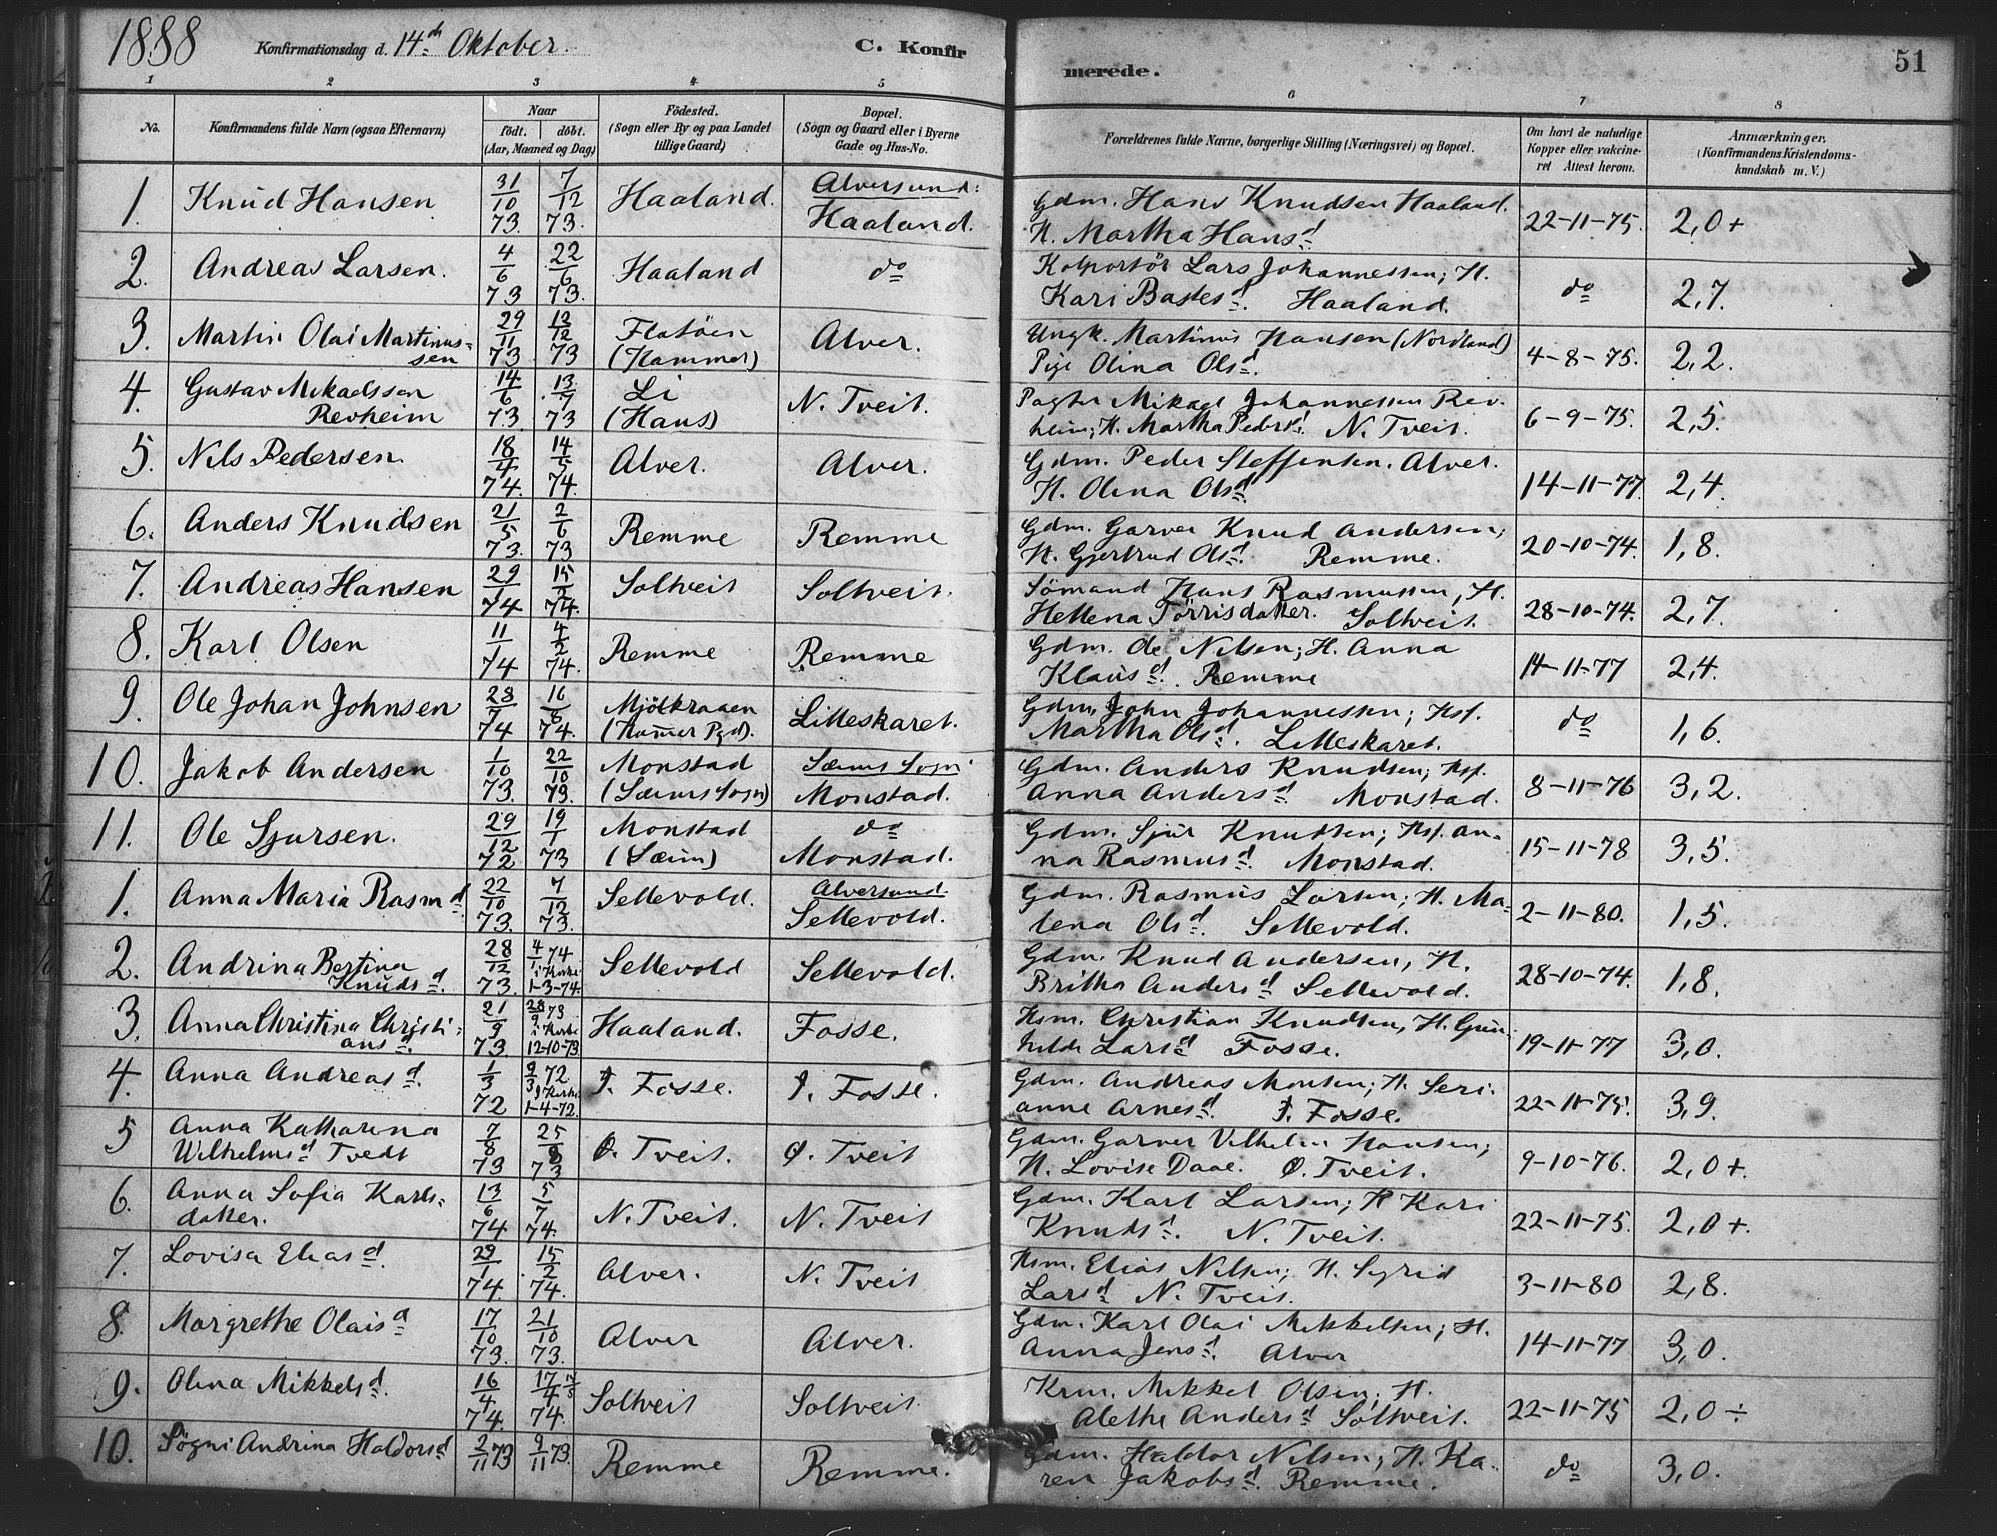 1888 Konfirmationsdag d. 14de Oktober. C. Konfirmerede. 51
1 2 3 4 5 6 7 8
No. Konfirmandens fulde Navn (ogsaa Efternavn) Naar födt. döbt. (Aar, Maaned og Dag) Födested. (Sogn eller By og paa Landet tillige Gaard) Bopæl. (Sogn og Gaard eller i Byerne Gade og Hus-No. Forældrenes fulde Navne, borgerlige Stilling (Næringsvei) og Bopæl. Om havt de naturlige Kopper eller vakcineret Attest herom. Anmærkninger, (Konfirmandens Kristendomskundskab m. V.)
1. Knud Hansen 31/10 73. 7/12 73. Haaland. Alversund: Haaland. Gdm. Hans Knudsen Haaland. H. Martha Hansd. 22-11-75. 2,0+
2. Andreas Larsen. 4/6 73 22/6 73. Haaland do Kolportör Lars Johannessen; H. Kari Bastesd. Haaland. do 2,7.
3. Martin Olai Martinussen 29/11 73 12/12 73 Flatöen (Hammer) Alver. Ungk. Martinus Hansen (Nordland) Pige Olina Olsd. 4-8-75. 2,2.
4. Gustav Mikaelssen Revheim 14/6 73. 13/7 73 Li (Haus) N. Tveit. Pagter Mikael Johannessen Revheim; H. Martha Pedersd. N. Tveit. 6-9-75. 2,5.
5. Nils Pedersen. 18/4 74. 14/5 74. Alver. Alver. Gdm. Peder Steffensen. Alver. H. Olina Olsd. 14-11-77. 2,4.
6. Anders Knudsen 21/5 73. 2/6 73 Remme Remme Gdm. Garver Knud Andersen; H. Gjertrud Olsd. Remme. 20-10-74. 1,8.
7. Andreas Hansen 29/1 74 15/2 74. Soltveit Soltveit. Sömand Hans Rasmussen, H. Hellena Törrisdatter. Soltveit. 28-10-74. 2,7.
8. Karl Olsen 11/1 74 4/2 74. Remme Remme Gdm. Ole Nilsen; H. Anna Klausd. Remme 14-11-77 2,4.
9. Ole Johan Johnsen 28/7 74 16/8 74. Mjölkraaen (Hammer Pgd). Lilleskaret. Gdm. John Johannessen; Hst. Martha Olsd. Lilleskaret. do 1,6.
10. Jakob Andersen 1/10 73. 22/10 73. Monstad (Sæims Sogn) Sæims Sogn Monstad. Gdm. Anders Knudsen; Hst. Anna Andersd. Monstad. 8-11-76 3,2.
11. Ole Sjursen. 29/12 72 19/1 73 Monstad (Sæim) do Monstad. Gdm. Sjur Knudsen; Hst. Anna Rasmusd. Monstad. 15-11-78 3,5.
1. Anna Maria Rasmd. 22/10 73. 7/12 73. Sellevold. Alversund. Sellevold. Gdm. Rasmus Larsen; H. Malena Olsd. Sellevold. 2-11-80. 1,5.
2. Andrina Bertina Knudsd. 28/12 73. 4/1 74 i Kirke 1-3-74. Sellevold Sellevold. Gdm. Knud Andersen, H. Britha Andersd Sellevold. 28-10-74. 1,8.
3. Anna Christina Christiansd. 21/9 73. 28/9 73 i Kirke 12-10-73 Haaland. Fosse. Hsm. Christian Knudsen, H. Gunhilde Larsd Fosse. 19-11-77 3,0.
4. Anna Andreasd. 1/3 72 9/3 72 i Kirke 1-4-72. I. Fosse. I. Fosse. Gdm. Andreas Monsen; H. Serianne Arnesd. I. Fosse. 22-11-75. 3,9.
5 Anna Katharina Wilhelmsd Tvedt 7/8 73 25/8 73 Ø. Tveit. Ø. Tveit Gdm. Garver Vilhelm Hansen; H. Lovise Daae. Ø. Tveit. 9-10-76. 2,0+.
6. Anna Sofia Karlsdatter. 13/6 74 5/7 74. N. Tveit. N. Tveit Gdm. Karl Larsen; H Kari Knudsd. N. Tveit. 22-11-75. 2,0+.
7. Lovisa Eliasd. 29/1 74. 15/2 74. Alver. N. Tveit Hsm. Elias Nilsen; H. Sygrid Larsd N. Tveit. 3-11-80 2,8.
8. Margrethe Olaisd 17/10 73. 21/10 73. Alver Alver. Gdm. Karl Olai Mikkelsen; H. Anna Jensd. Alver 14-11-77 3,0.
9. Olina Mikkelsd. 16/4 74. 17/4 74. Soltveit Soltveit. Krm. Mikkel Olsen; H. Alethe Andersd Soltveit. 22-11-75 2,0÷
10. Sögni Andrina Haldorsd 2/11 73 9/11 73. Remme Remme. Gdm. Haldor Nilsen; H. Karen Jakobsd. Remme. do 3,0.